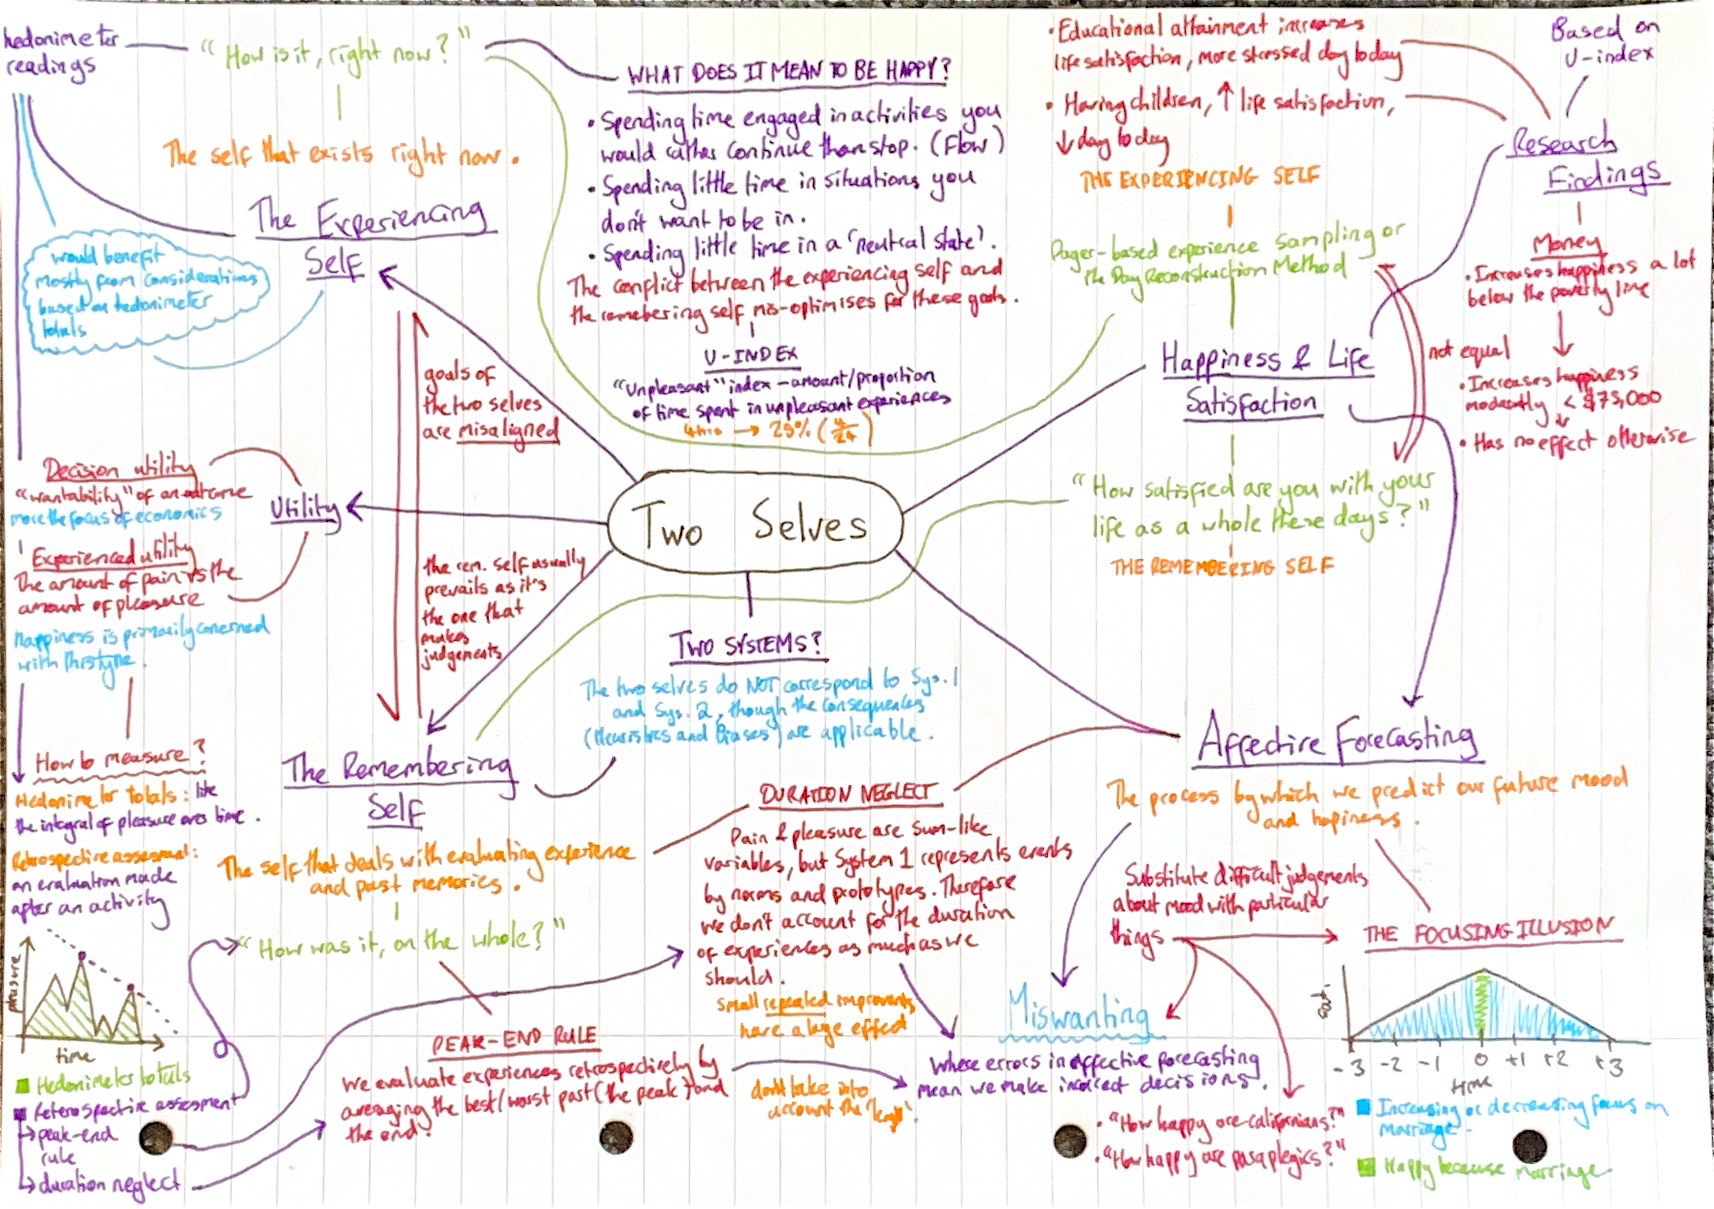 hedonimeter
readings
"How is it, right now?"
The self that exists right now.
The Experiencing
Self
would benefit
mostly from considerations
based on hedonimeter
totals
WHAT DOES IT MEAN TO BE HAPPY?
• Spending time engaged in activities you
would rather continue than stop. (Flow)
• Spending little time in situations you
don't want to be in.
• Spending little time in a 'neutral state'.
The conflict between the experiencing self and
the remebering self mis-optimises for these goals.
U-INDEX
"Unpleasant" index - amount/proportion
of time spent in unpleasant experiences
4hrs → 25% (4/24)
• Educational attainment increases
life satisfaction, more stressed day to day
• Having children, ↑ life satisfaction,
↓ day to day
THE EXPERIENCING SELF
Pager-based experience sampling or
the Day Reconstruction Method
Based on
U-index
Research
Findings
Money
• Increases happiness a lot
below the poverty line
not equal
• Increases happiness
moderately < $75,000
• Has no effect otherwise
Happiness & Life
Satisfaction
"How satisfied are you with your
life as a whole these days?"
THE REMEMBERING SELF
goals of
the two selves
are misaligned
the rem. self usually
prevails as it's
the one that
makes
judgements
Decision utility
"wantability" of an outcome
more the focus of economics
Experienced utility
The amount of pain vs the
amount of pleasure
Happiness is primarily concerned
with this type.
Utility
Two Selves
TWO SYSTEMS?
The two selves do NOT correspond to Sys. 1
and Sys. 2, though the consequences
(Heuristics and Biases) are applicable.
How to measure?
Hedonimeter totals: like
the integral of pleasure over time.
Retrospective assessment:
an evaluation made
after an activity
pleasure
time
Hedonimeter totals
Reterospective assesment
→ peak-end
rule
→ duration neglect
The Remembering
Self
The self that deals with evaluating experience
and past memories.
"How was it, on the whole?"
PEAK-END RULE
We evaluate experiences retrospectively by
averaging the best/worst past (the peak) and
the end.
DURATION NEGLECT
Pain & pleasure are sum-like
variables, but System 1 represents events
by norms and prototypes. Therefore
we don't account for the duration
of experiences as much as we
should.
Small repeated improvments
have a large effect
don't take into
account the
Affective Forecasting
The process by which we predict our future mood
and hapiness.
Substitute difficult judgements
about mood with particular
things
Miswanting
Where errors in affective forecasting
mean we make incorrect decisions.
• "How happy are californians?"
• "How happy are paraplegics?"
THE FOCUSING ILLUSION
Sat.
-3 -2 -1 0 +1 +2 +3
time
Increasing or decreasing focus on
marriage.
Happy because marriage.